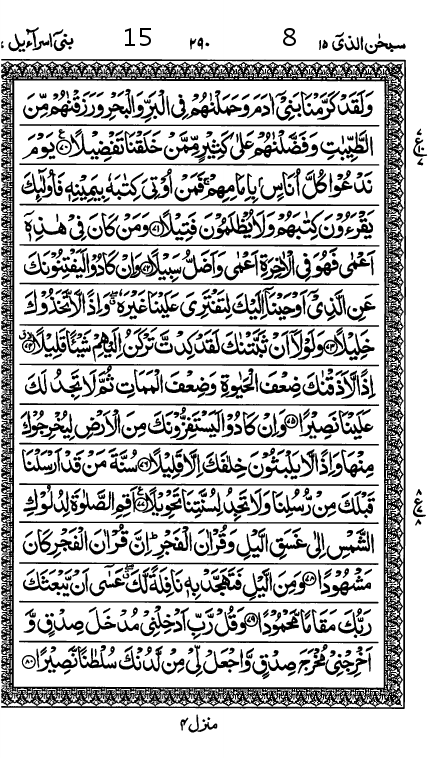 سبحٰن الذیٓ ١٥ 8 ٢٩٠ 15 بنیٓ اسرآءیل ١٧
وَلَقَدْ كَرَّمْنَا بَنِیْۤ اٰدَمَ وَحَمَلْنٰهُمْ فِی الْبَرِّ وَالْبَحْرِ وَرَزَقْنٰهُمْ مِّنَ
الطَّیِّبٰتِ وَفَضَّلْنٰهُمْ عَلٰی كَثِیْرٍ مِّمَّنْ خَلَقْنَا تَفْضِیْلًا ﴿٧٠﴾ یَوْمَ
نَدْعُوْا كُلَّ اُنَاسٍۭ بِاِمَامِهِمْ ۚ فَمَنْ اُوْتِیَ كِتٰبَهٗ بِیَمِیْنِهٖ فَاُولٰٓىِٕكَ
یَقْرَءُوْنَ كِتٰبَهُمْ وَلَا یُظْلَمُوْنَ فَتِیْلًا ﴿٧١﴾ وَمَنْ كَانَ فِیْ هٰذِهٖۤ
اَعْمٰی فَهُوَ فِی الْاٰخِرَةِ اَعْمٰی وَاَضَلُّ سَبِیْلًا ﴿٧٢﴾ وَاِنْ كَادُوْا لَیَفْتِنُوْنَكَ
عَنِ الَّذِیْۤ اَوْحَیْنَاۤ اِلَیْكَ لِتَفْتَرِیَ عَلَیْنَا غَیْرَهٗ ۖ وَاِذًا لَّاتَّخَذُوْكَ
خَلِیْلًا ﴿٧٣﴾ وَلَوْلَاۤ اَنْ ثَبَّتْنٰكَ لَقَدْ كِدْتَّ تَرْكَنُ اِلَیْهِمْ شَیْـًٔا قَلِیْلًا ﴿٧٤﴾
اِذًا لَّاَذَقْنٰكَ ضِعْفَ الْحَیٰوةِ وَضِعْفَ الْمَمَاتِ ثُمَّ لَا تَجِدُ لَكَ
عَلَیْنَا نَصِیْرًا ﴿٧٥﴾ وَاِنْ كَادُوْا لَیَسْتَفِزُّوْنَكَ مِنَ الْاَرْضِ لِیُخْرِجُوْكَ
مِنْهَا وَاِذًا لَّا یَلْبَثُوْنَ خِلٰفَكَ اِلَّا قَلِیْلًا ﴿٧٦﴾ سُنَّةَ مَنْ قَدْ اَرْسَلْنَا
قَبْلَكَ مِنْ رُّسُلِنَا وَلَا تَجِدُ لِسُنَّتِنَا تَحْوِیْلًا ﴿٧٧﴾ اَقِمِ الصَّلٰوةَ لِدُلُوْكِ
الشَّمْسِ اِلٰی غَسَقِ الَّیْلِ وَقُرْاٰنَ الْفَجْرِ ؕ اِنَّ قُرْاٰنَ الْفَجْرِ كَانَ
مَشْهُوْدًا ﴿٧٨﴾ وَمِنَ الَّیْلِ فَتَهَجَّدْ بِهٖ نَافِلَةً لَّكَ ۖ عَسٰۤی اَنْ یَّبْعَثَكَ
رَبُّكَ مَقَامًا مَّحْمُوْدًا ﴿٧٩﴾ وَقُلْ رَّبِّ اَدْخِلْنِیْ مُدْخَلَ صِدْقٍ وَّ
اَخْرِجْنِیْ مُخْرَجَ صِدْقٍ وَّاجْعَلْ لِّیْ مِنْ لَّدُنْكَ سُلْطٰنًا نَّصِیْرًا ﴿٨٠﴾
منزل ٤